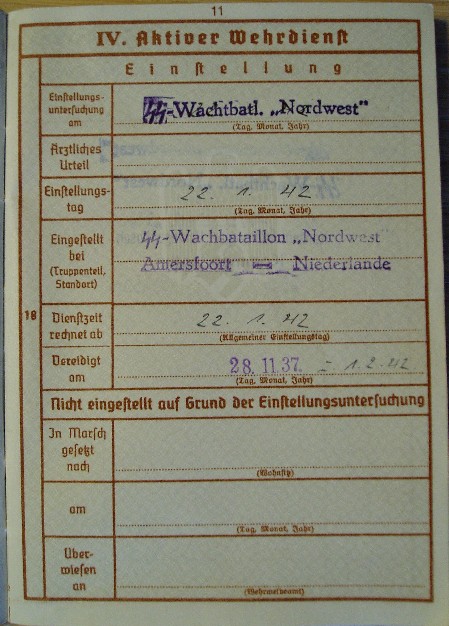 11
IV. Aktiver Wehrdienst
Einstellung
Einstellungs-
untersuchung
am
SS-Wachtbatl. „Nordwest"
(Tag, Monat, Jahr)
Ärztliches
Urteil
Einstellungs-
tag
22. 1. 42
(Tag, Monat, Jahr)
Eingestellt
bei
(Truppenteil,
Standort)
SS-Wachbataillon „Nordwest"
Amersfoort - Niederlande
18
Dienstzeit
rechnet ab
22. 1. 42
(Allgemeiner Einstellungstag)
Vereidigt
am
28. 11. 37. 1. 2. 42
(Tag, Monat, Jahr)
Nicht eingestellt auf Grund der Einstellungsuntersuchung
In Marsch
gesetzt
nach
(Wohnsitz)
am
(Tag, Monat, Jahr)
Über-
wiesen
an
(Wehrmeldeamt)